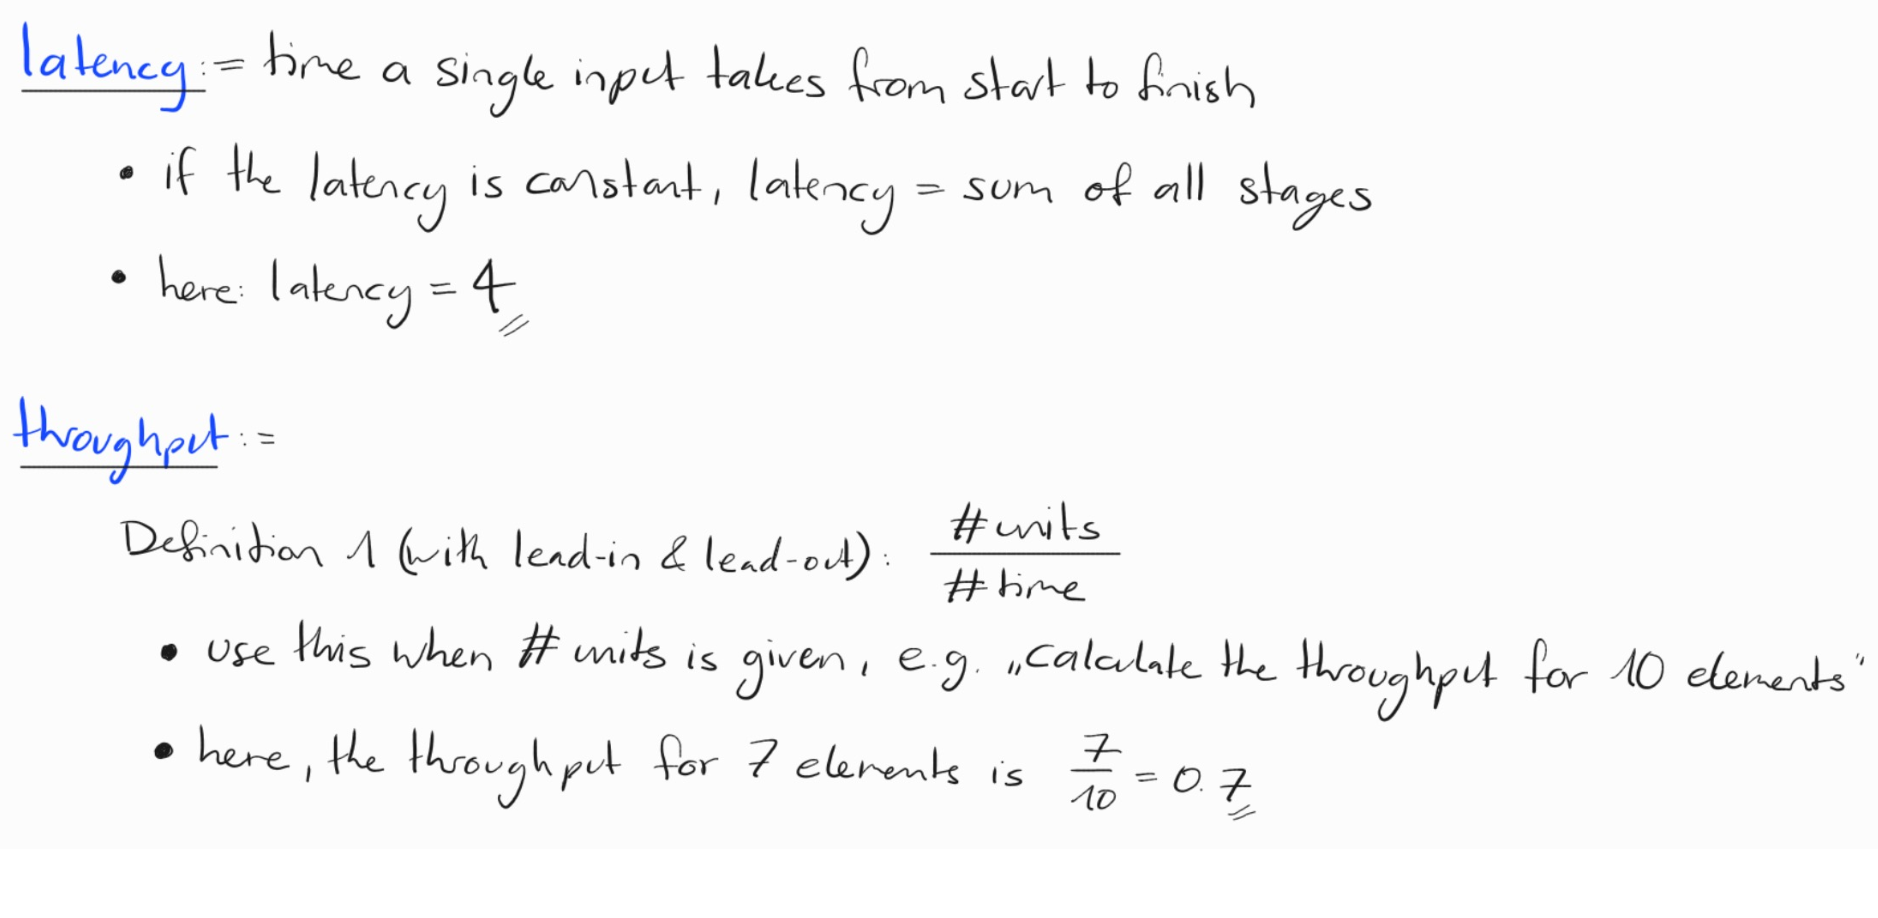 latency := time a single input takes from start to finish
• if the latency is constant, latency = sum of all stages
• here: latency = 4
throughput :=
Definition 1 (with lead-in & lead-out): #units / #time
• use this when # units is given, e.g. „calculate the throughput for 10 elements"
• here, the throughput for 7 elements is 7/10 = 0.7